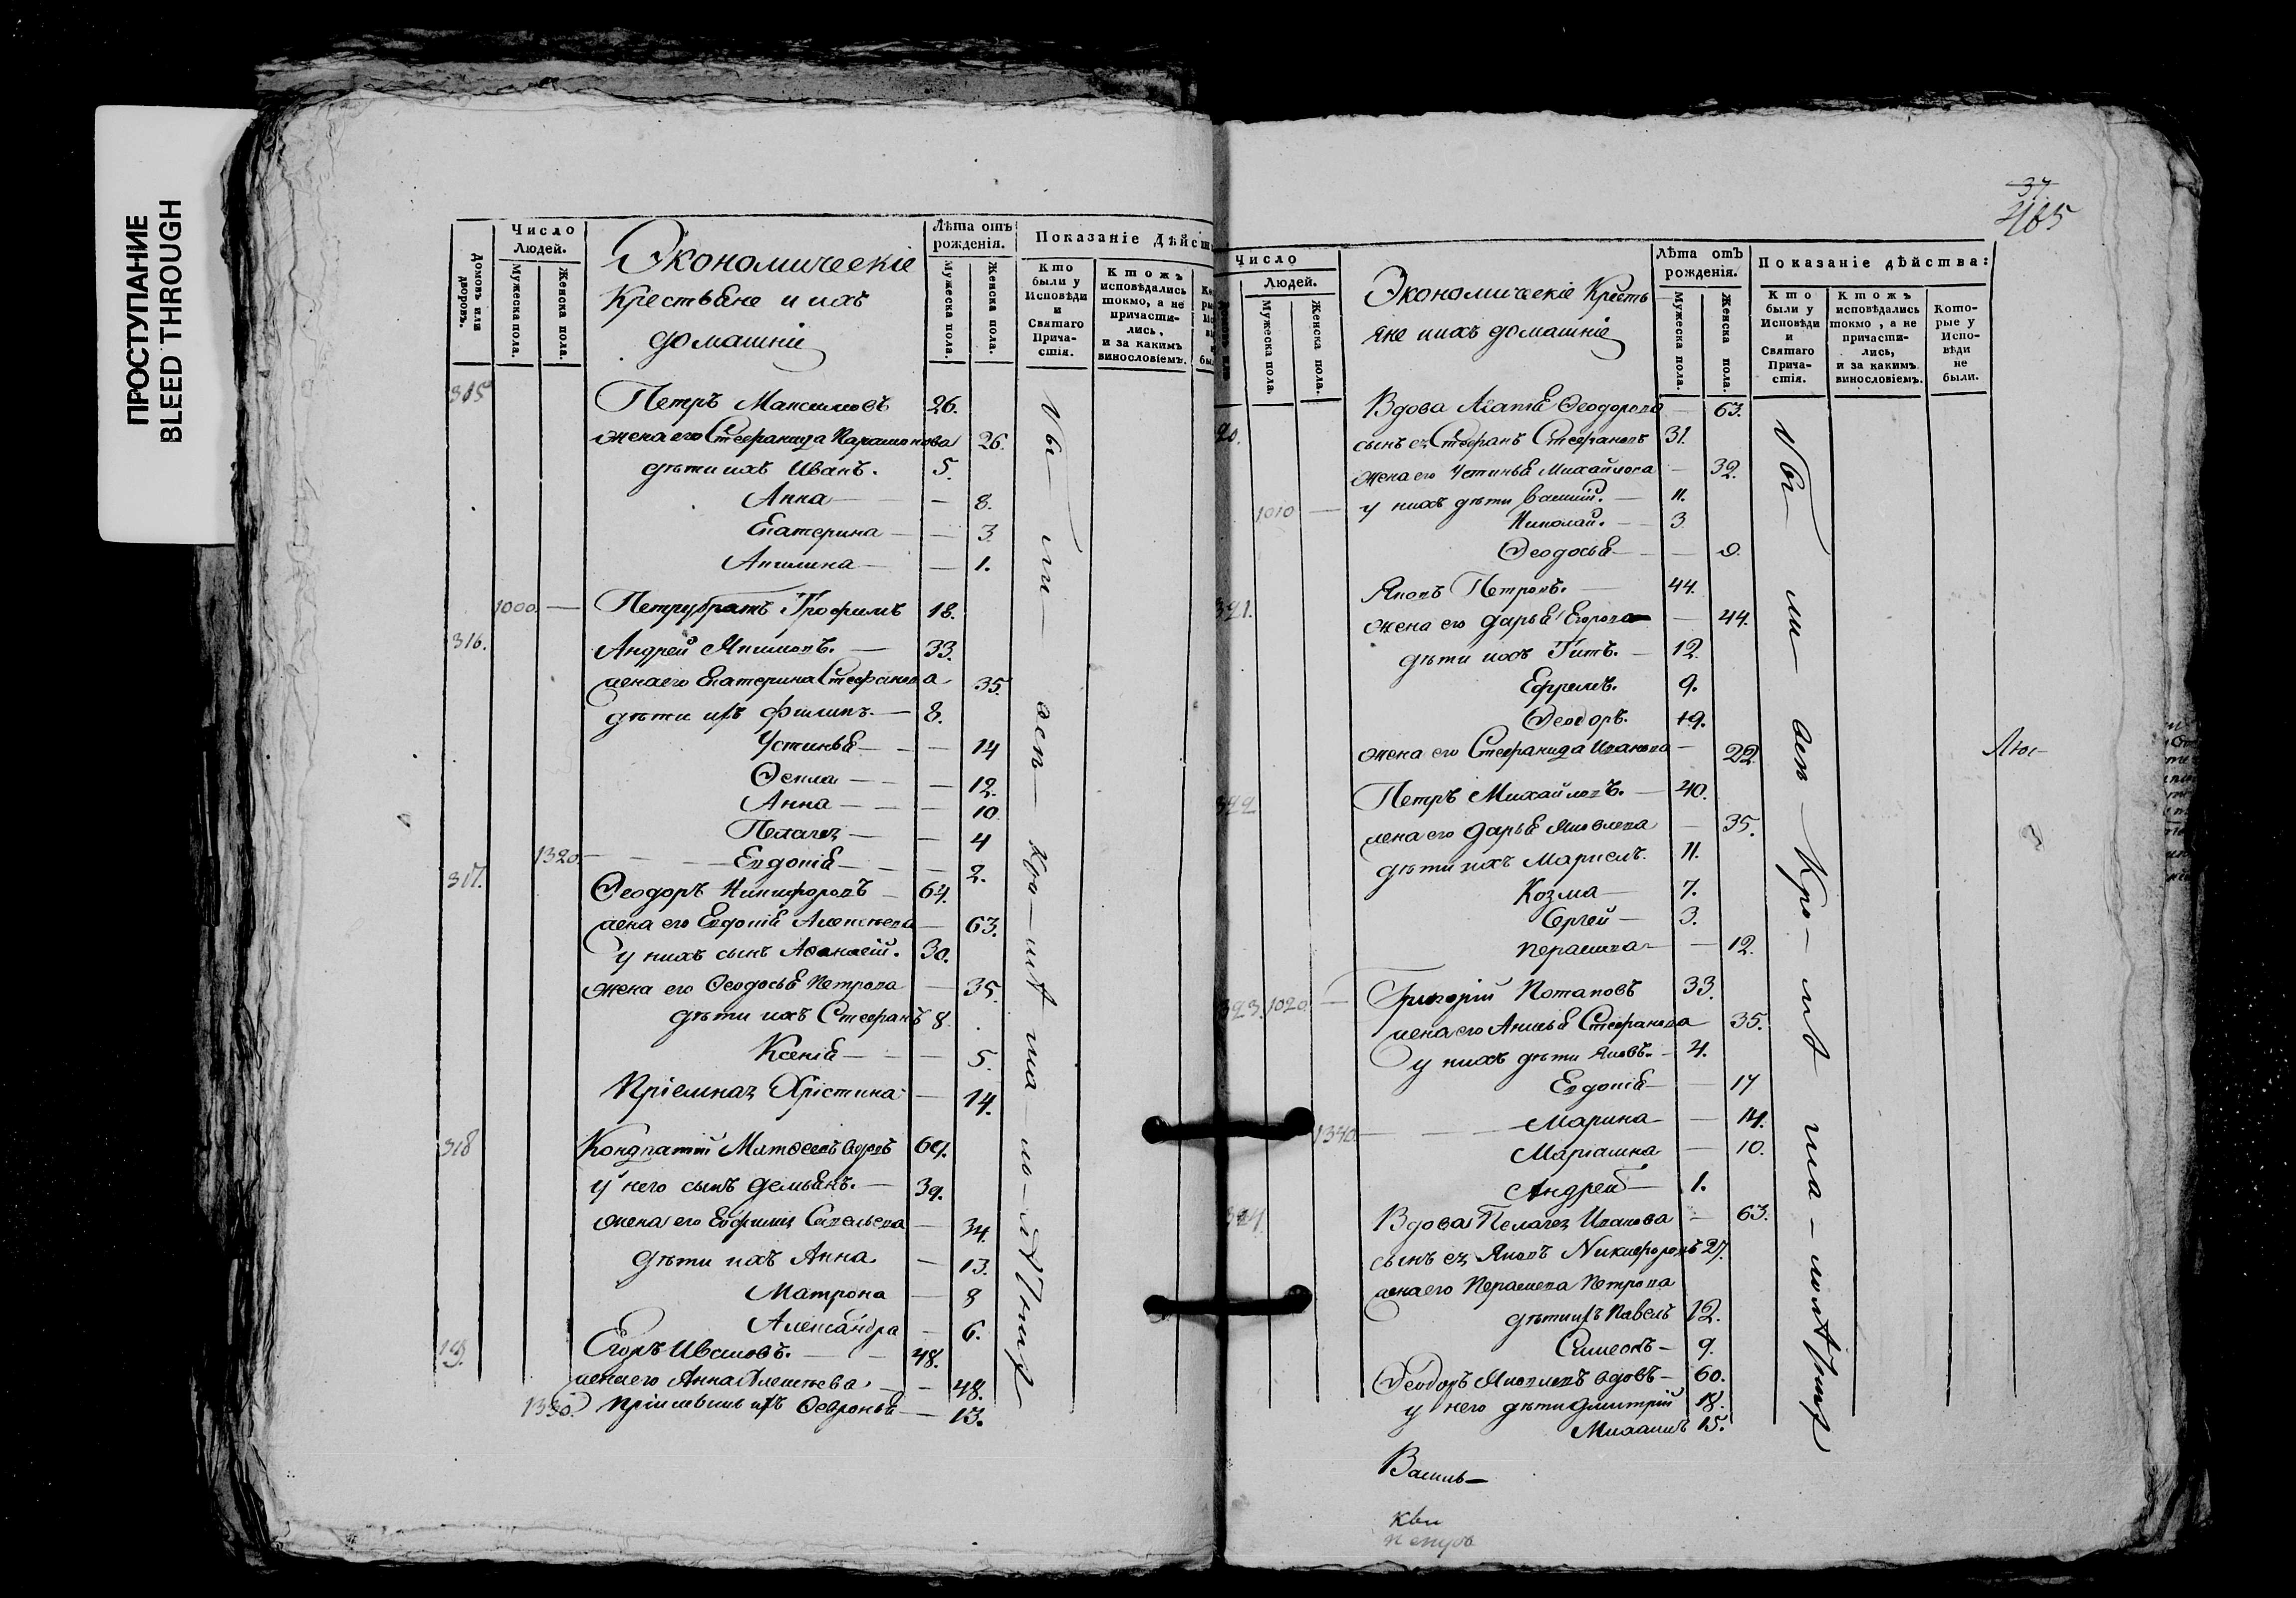 ПРОСТУПАНИЕ
BLEED THROUGH
Домовъ или дворовъ.
Число Людей.
Мужеска пола.
Женска пола.
Экономическіе
Крестьяне и ихъ
домашніе
Лѣта отъ рожденія.
Мужеска пола.
Женска пола.
Показаніе Дѣйст
Кто были у Исповѣди и Святаго Прича-стія.
Ктожъ исповѣдались токмо, а не причасти-лись, и за какимъ винословіемъ.
315 Петръ Максимовъ 26.
жена его Стефанида Парамонова 26.
дѣти ихъ Иванъ. 5.
Анна — 8.
Екатерина — 3
Акилина — 1.
1000. — Петру братъ Трофимъ 18.
316. Андрей Якимовъ. — 33.
жена его Екатерина Стефанова 35.
дѣти ихъ Филипъ. — 8.
Устинья — 14
Ѳекла — 12.
Анна — 10
Пелагея — 4
1320. — Евдокія — 2.
317. Ѳеодоръ Никифоровъ — 64.
жена его Евдокія Алексѣева — 63.
у нихъ сынъ Аѳанасій. 30.
жена его Ѳеодосья Петрова — 35.
дѣти ихъ Стефанъ 8.
Ксенія — 5.
Пріемная Христина — 14.
318 Кондратій Матѳеевъ вдовъ 69.
у него сынъ Демьянъ. — 39.
жена его Евфимия Савельева — 34.
дѣти ихъ Анна — 13.
Матрона — 8
Александра — 6.
19. Егоръ Ивановъ. — 48.
жена его Анна Алексѣева — 48.
1330. Ѳевронья — 13.
37
465
Число Людей.
Мужеска пола.
Женска пола.
Экономическіе Кресть
яне и ихъ домашніе
Лѣта отъ рожденія.
Мужеска пола.
Женска пола.
Показаніе дѣйства:
Кто были у Исповѣди и Святаго Прича-стія.
Ктожъ исповѣдались токмо, а не причасти-лись, и за какимъ винословіемъ.
Кото-рые у Испо-вѣди не были.
Вдова Агапія Ѳеодорова — 63.
20. сынъ ея Стефанъ Стефановъ 31.
жена его Устинья Михайлова — 32.
1010 — у нихъ дѣти Василій. — 11.
Николай. — 3
Ѳеодосья —
Яковъ Петровъ. — 44.
321. жена его Дарья Егорова — 44.
дѣти ихъ Титъ. — 12.
Ефремъ. 9.
Ѳеодоръ. 19.
жена его Стефанида Иванова — 22.
322 Петръ Михайловъ. — 40.
жена его Дарья Яковлева — 35.
дѣти ихъ Маркелъ. 11.
Козма — 7.
Сергей — 3.
Перасковa — 12.
323. 1020. — Григорій Потаповъ 33.
жена его Анисья Стефанова 35.
у нихъ дѣти Яковъ. — 4.
Евдокія — 17
1340. — Марина — 14.
Маріамна — 10.
Андрей — 1.
324 Вдова Пелагея Иванова — 63.
сынъ ея Яковъ Никифоровъ 27.
жена его Перасковa Петрова
дѣти ихъ Павелъ 12.
Симеонъ — 9.
Ѳеодоръ Яковлевъ вдовъ — 60.
у него дѣти Дмитрій 18.
Михаилъ 15.
Василь—
кви
петръ